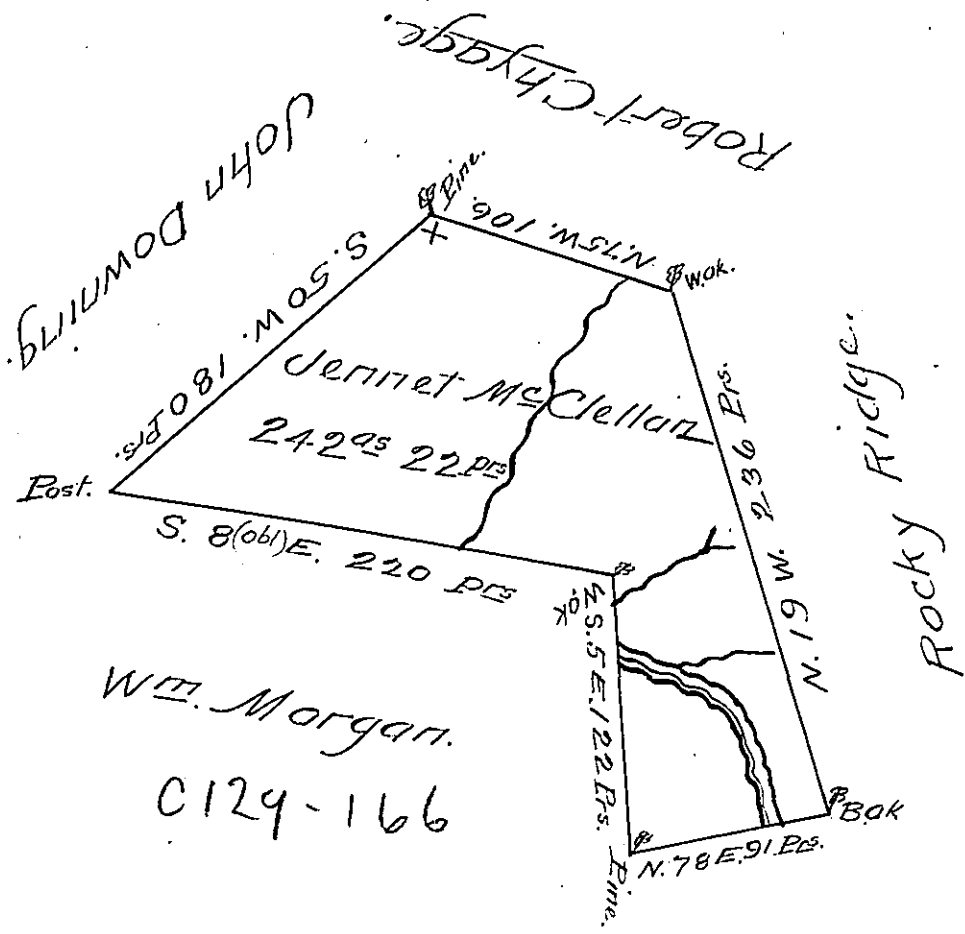 Robert Chyage.
John Downing.
Pine.
N. 75 W. 106.
W.ok.
S. 50 W. 180 Prs.
Jennet McClellan
242as 22prs
Post.
S. 8(obl)E. 220 prs
N. 19 W. 236 Prs.
Rocky Ridge.
W. ok.
S. 5 E. 122 Prs.
Wm. Morgan.
C129-166
B.ok
N. 78 E. 91 Prs.
Pine.